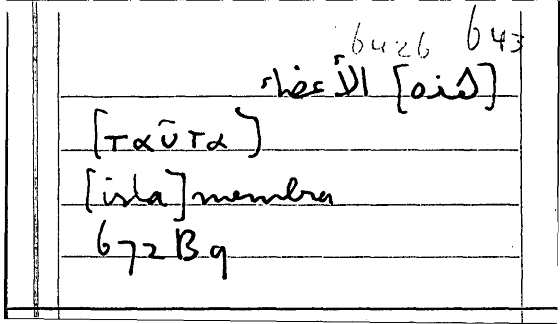 6426 643
[هذه] الأعضاء
[ταῦτα]
[ista] membra
672 B 9